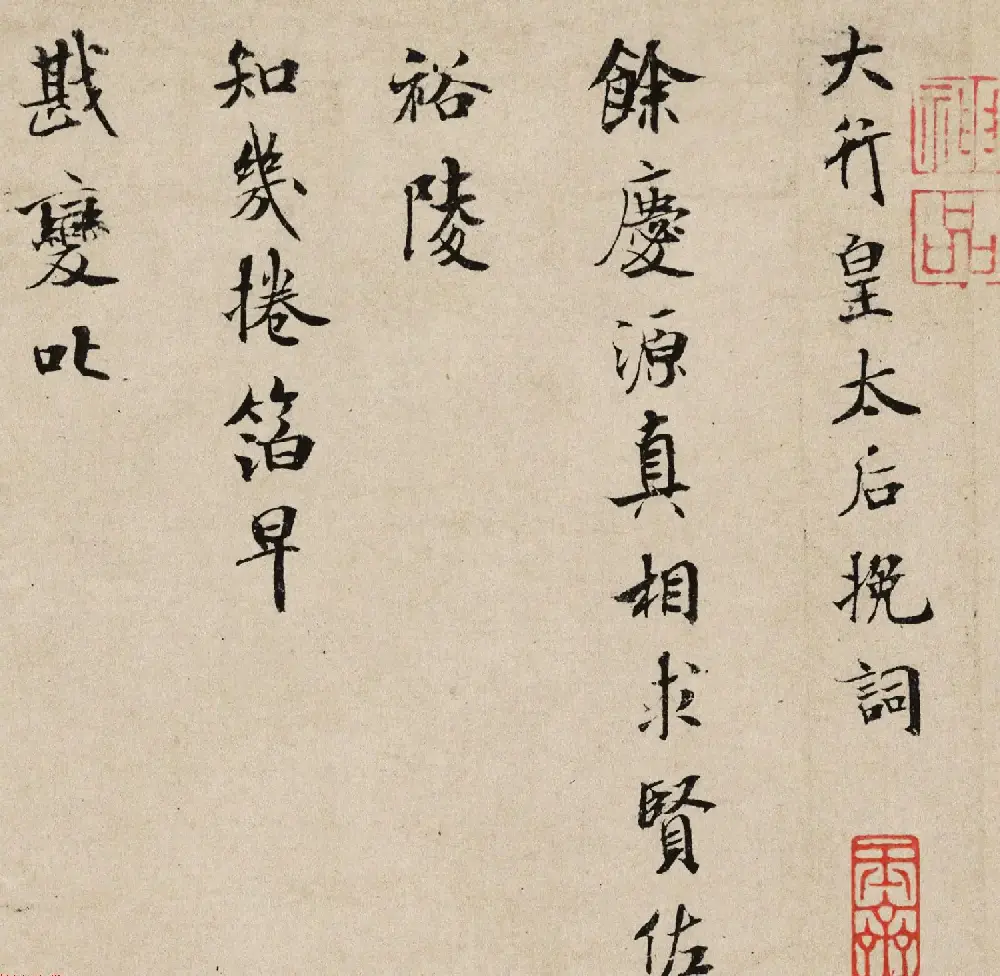 大行皇太后挽詞
餘慶源真相求賢佐
裕陵
知幾捲箔早
戡變叱
神品